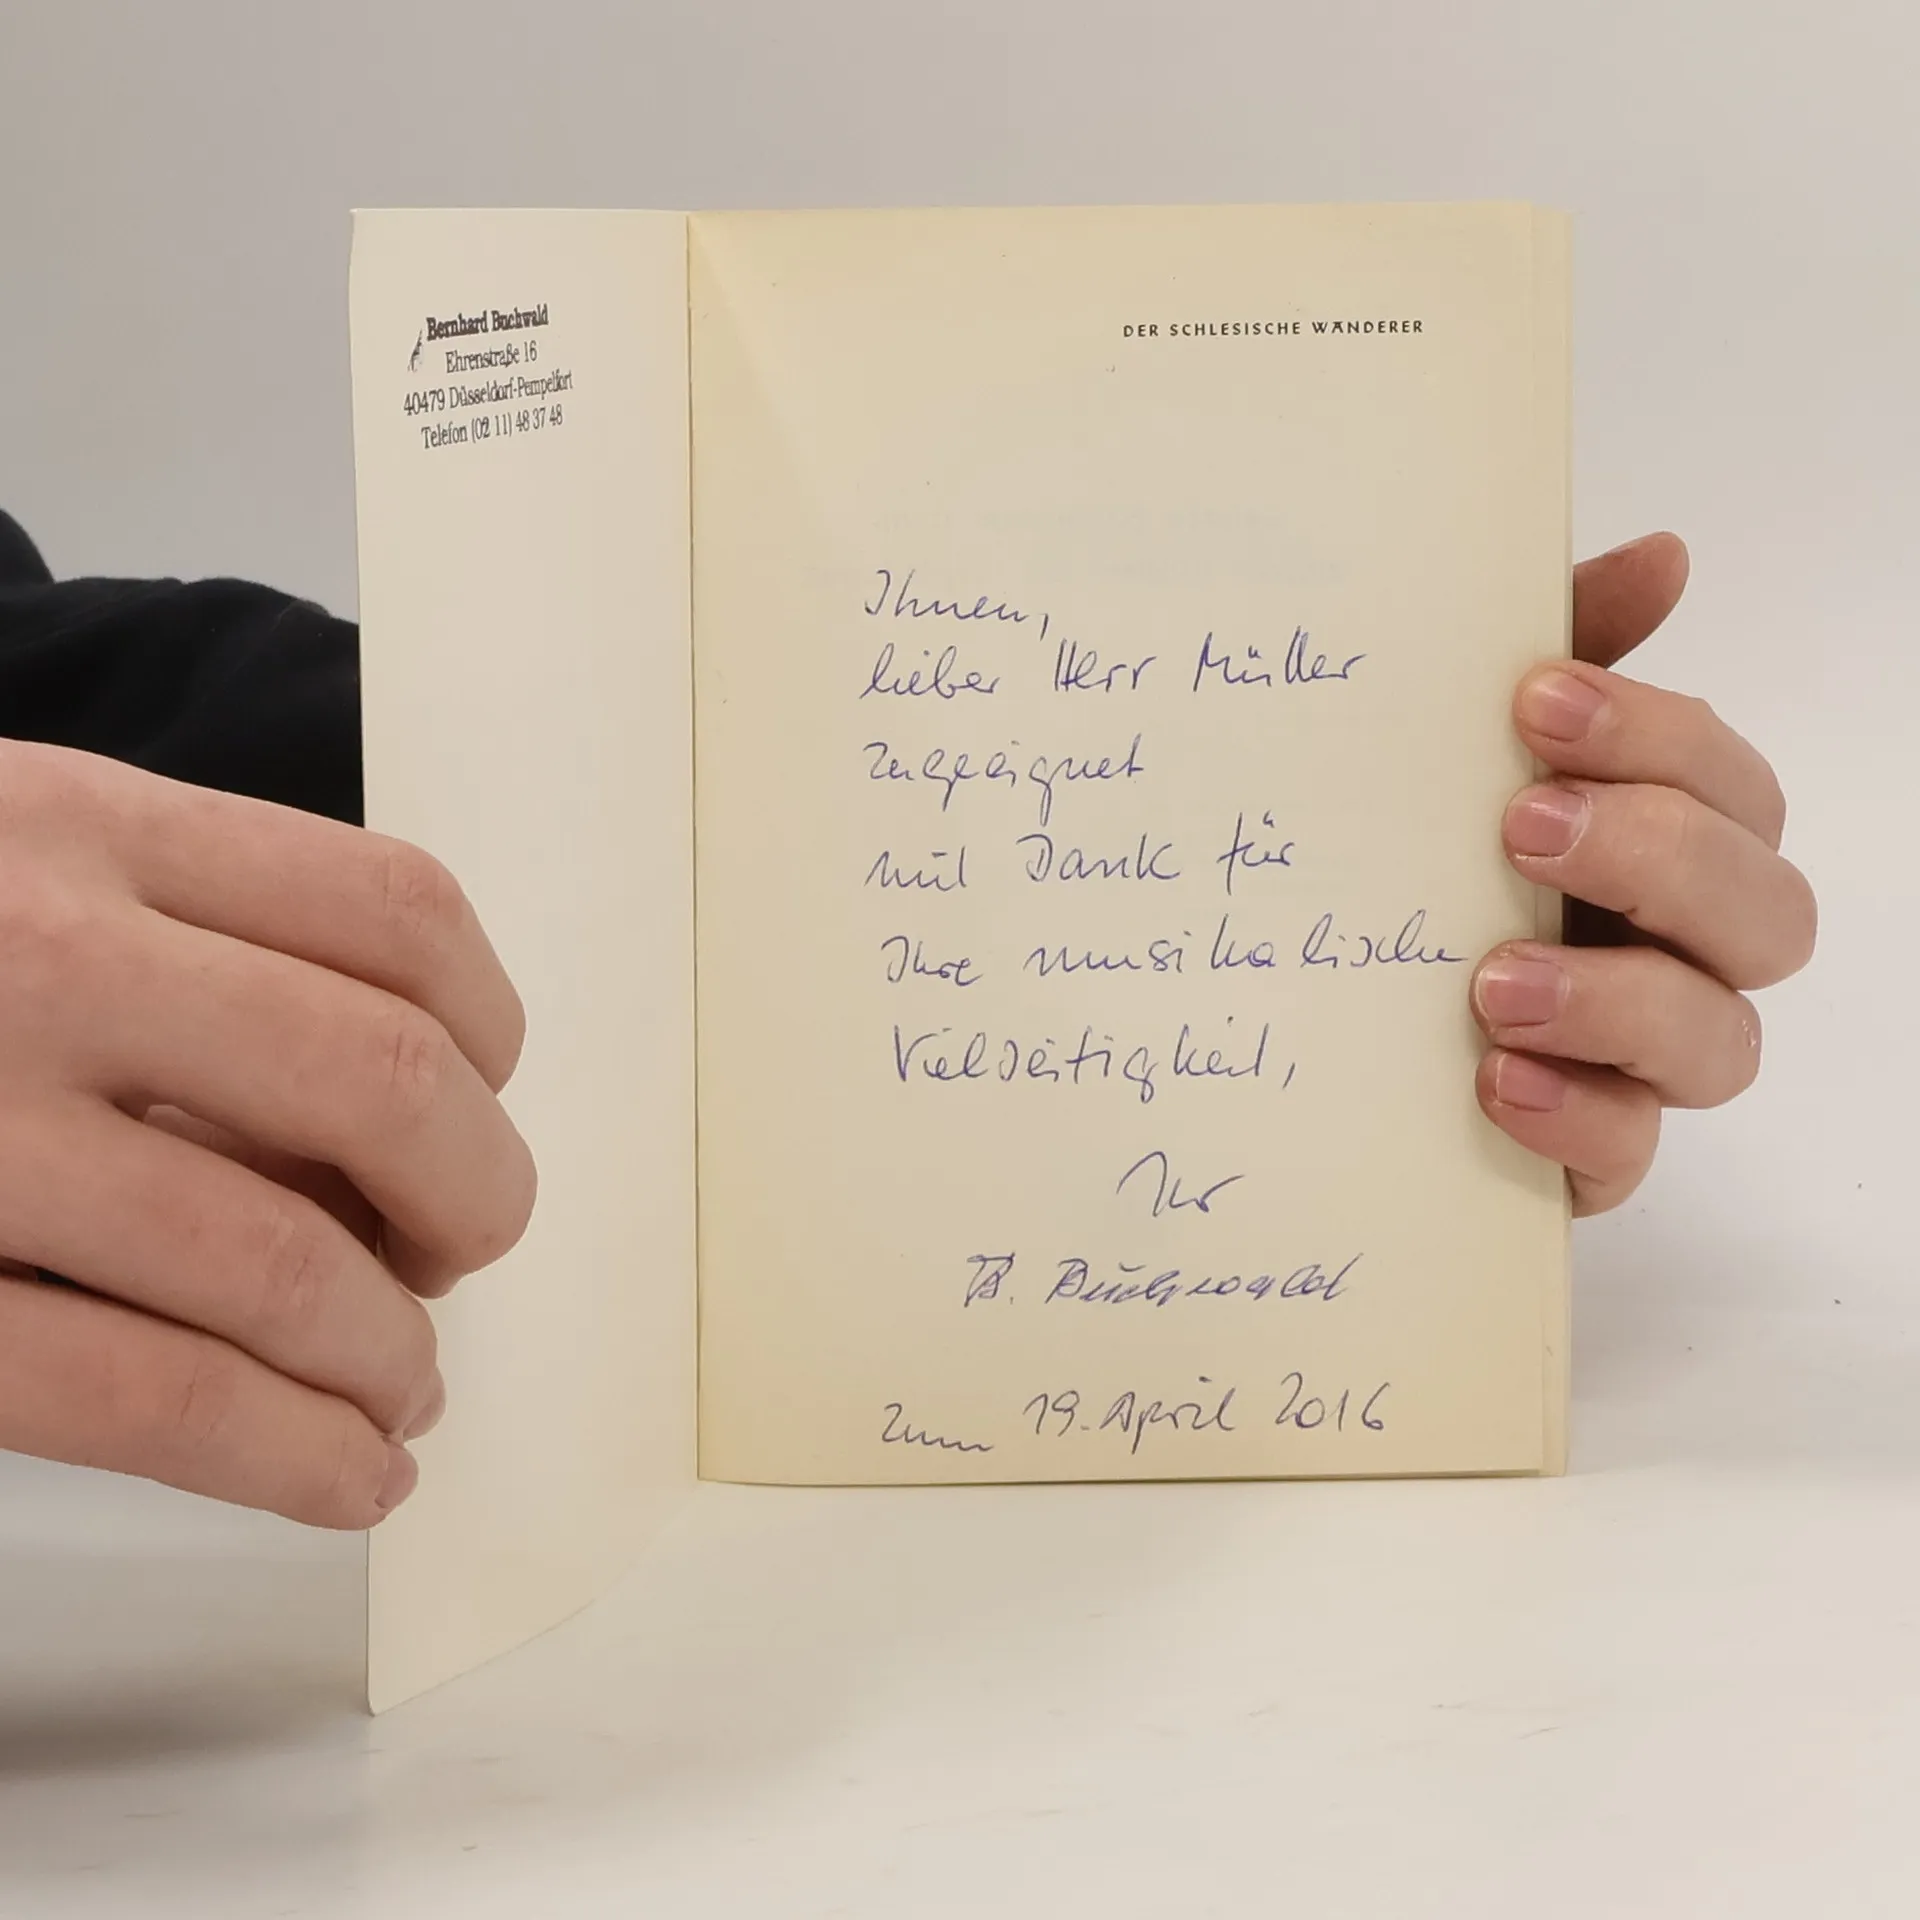 Bernhard Buchwald
Ehrenstraße 16
40479 Düsseldorf-Pempelfort
Telefon (02 11) 48 37 48
DER SCHLESISCHE WANDERER
Ihnen,
lieber Herr Müller
zugeeignet
mit Dank für
Ihre musikalische
Vielseitigkeit,
Ihr
B. Buchwald
zum 19. April 2016